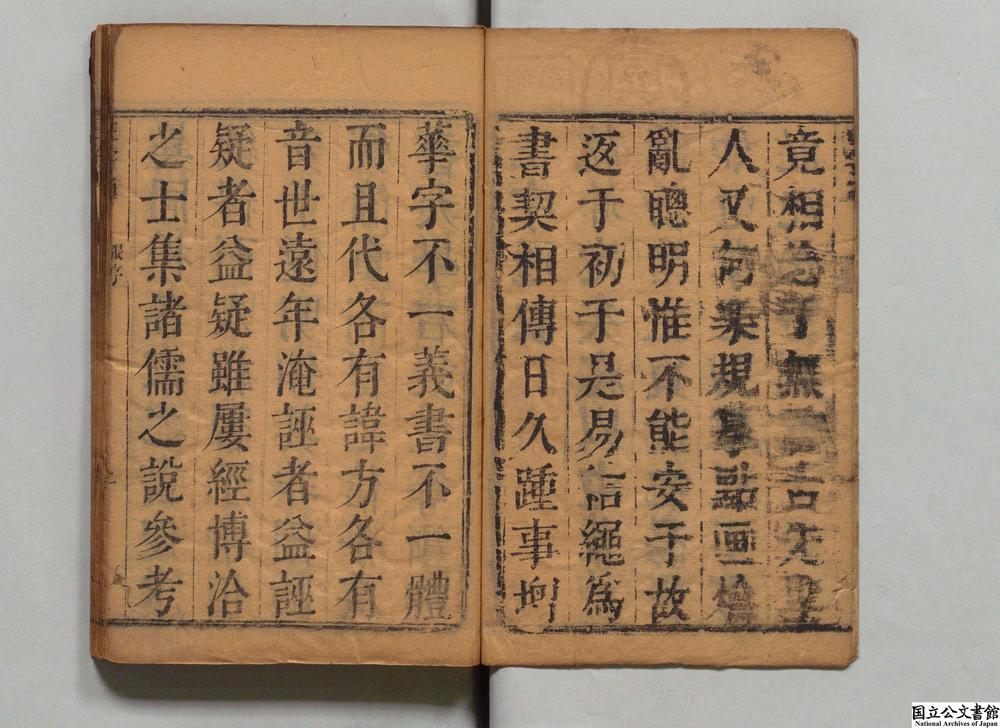 竟相無
人又何規摹點画
亂聰明惟不能安于故
返于初于是易結繩為
書契相傳日久踵事增
華字不一義書不一體
而且代各有諱方各有
音世遠年淹誣者益誣
疑者益疑雖屢經博洽
之士集諸儒之說參考
張序
国立公文書館
National Archives of Japan